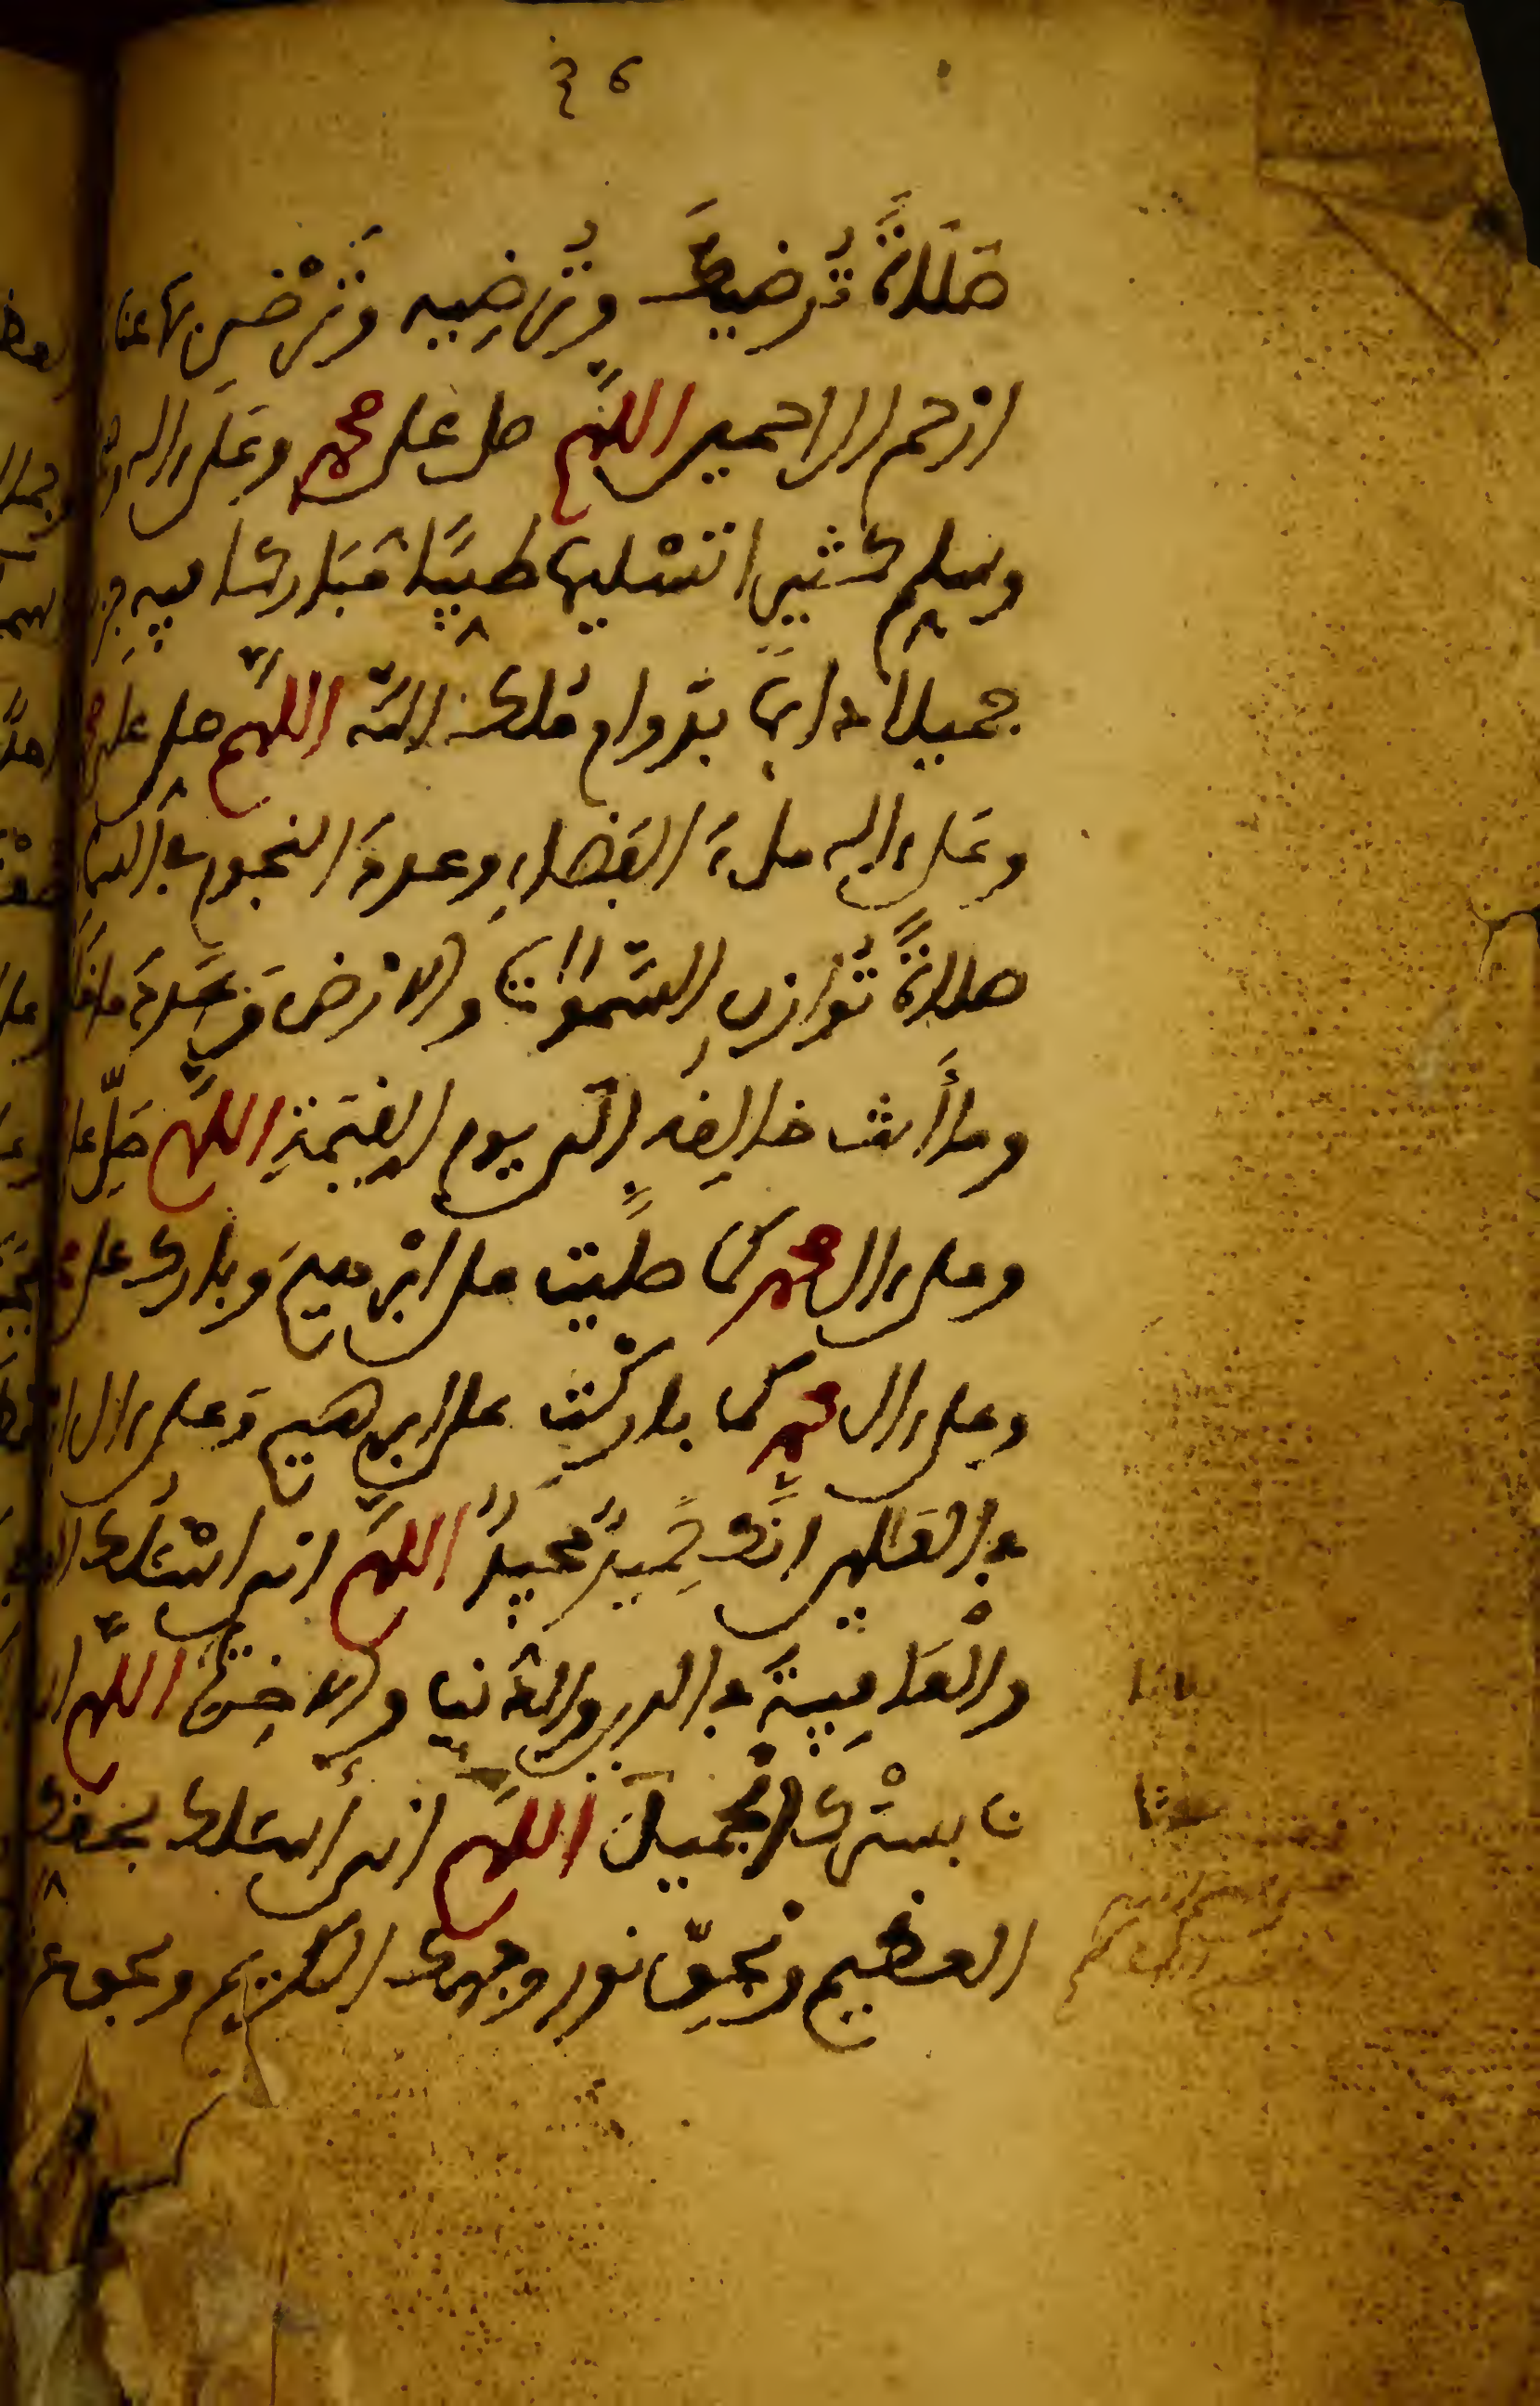 صَلَاةً تُرضيكَ وتُرضِيه وتَرْضى بها عنا
ارحم الراحمين اللهم صل على محمد وعَلى ءاله
وسلم كثيرا تسْليما طيبًا مُبَاركا فيه
جميلا دايمًا بدَوام مُلك الله اللهم صل على
وعَلى ءاله ملءَ الفَضاءِ وعددَ النجوم في السما
صلاةً تُوازن السَّموات والارضَ وعَددَ ما خلقت
وما أَنت خالِقه إلى يوم القيمةِ اللهم صَلِّ على
وعلى ءال محمد كما صليت على ابْرهيمَ وبارك على
وعلى ءال محمد كما باركْتَ على ابرهيم وَعلى ءال
في العَلمين انَّك حَمِيدٌ مجيدٌ اللهم اني اسْئلُك
والْعَافِيةَ في الدين والدُّنيا والاخِرة اللهم
نا بسترك الْجميلَ اللهم اني أَسئلك بحقك
العظيم وبحقِّ نور وجهك الكريم وبحق